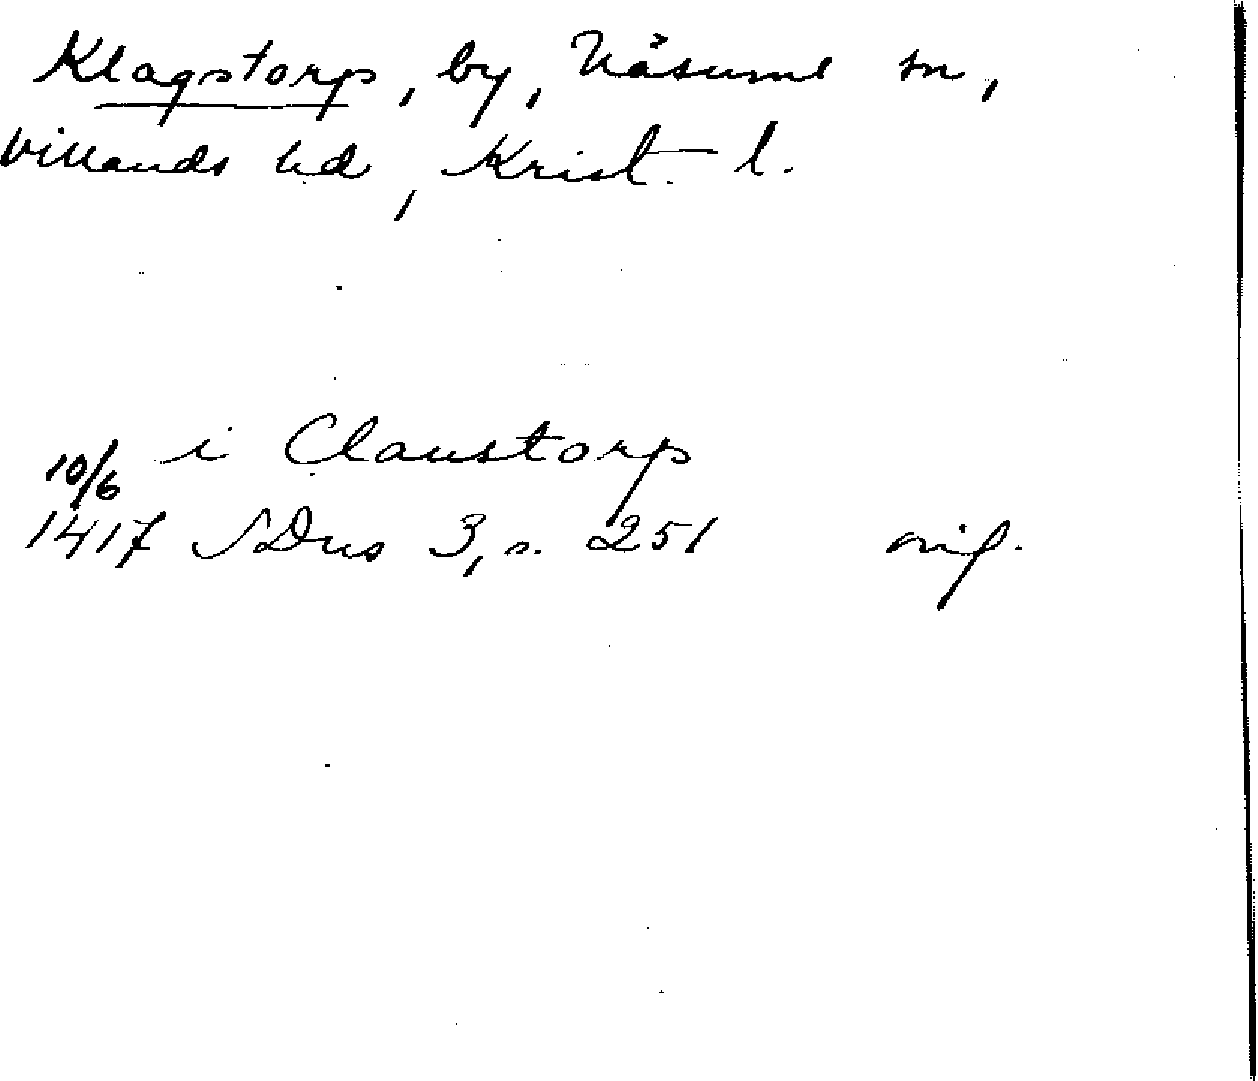 Klagstorp, by, Näsums sn,
Villands hd, Krist. l.
i Claustorp
10/6
1417 SDns 3, s. 251 orig.